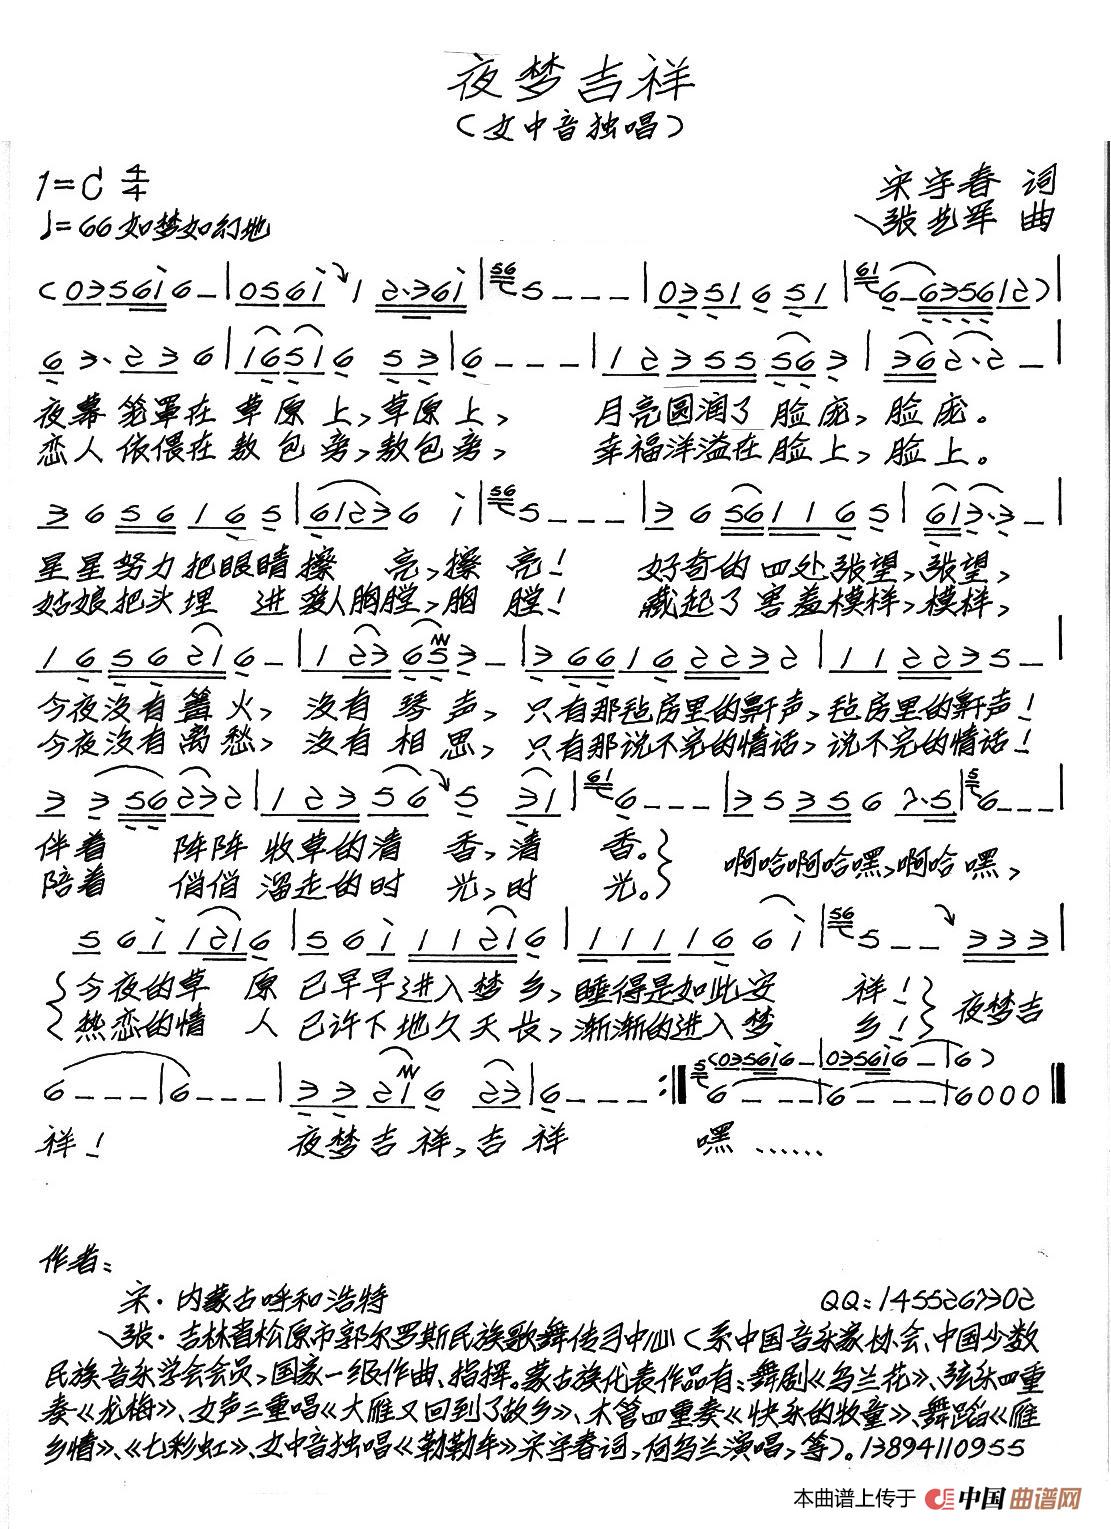 夜梦吉祥
（女中音独唱）
1=C 4/4
宋宇春 词
♩=66 如梦如幻地
张艺军 曲
夜幕笼罩在草原上，草原上， 月亮圆润了脸庞，脸庞。
恋人依偎在敖包旁，敖包旁， 幸福洋溢在脸上，脸上。
星星努力把眼睛擦 亮，擦 亮！ 好奇的四处张望，张望，
姑娘把头埋 进爱人胸膛，胸 膛！ 藏起了害羞模样，模样，
今夜没有篝火， 没有琴声， 只有那毡房里的鼾声，毡房里的鼾声！
今夜没有离愁， 没有相思， 只有那说不完的情话，说不完的情话！
伴着 阵阵牧草的清 香，清 香。 啊哈啊哈嘿，啊哈嘿，
陪着 悄悄溜走的时 光，时 光。
今夜的草 原 已早早进入梦乡，睡得是如此安 祥！ 夜梦吉
热恋的情 人 已许下地久天长，渐渐的进入梦 乡！
祥！ 夜梦吉祥，吉祥 嘿……
作者：
宋·内蒙古呼和浩特 QQ：1455267302
张·吉林省松原市郭尔罗斯民族歌舞传习中心（系中国音乐家协会、中国少数
民族音乐学会会员，国家一级作曲、指挥。蒙古族代表作品有：舞剧《乌兰花》、弦乐四重
奏《龙梅》、女声三重唱《大雁又回到了故乡》、木管四重奏《快乐的牧童》、舞蹈《雁
乡情》、《七彩虹》、女中音独唱《勒勒车》宋宇春词，何乌兰演唱，等）。13894110955
本曲谱上传于 中国曲谱网